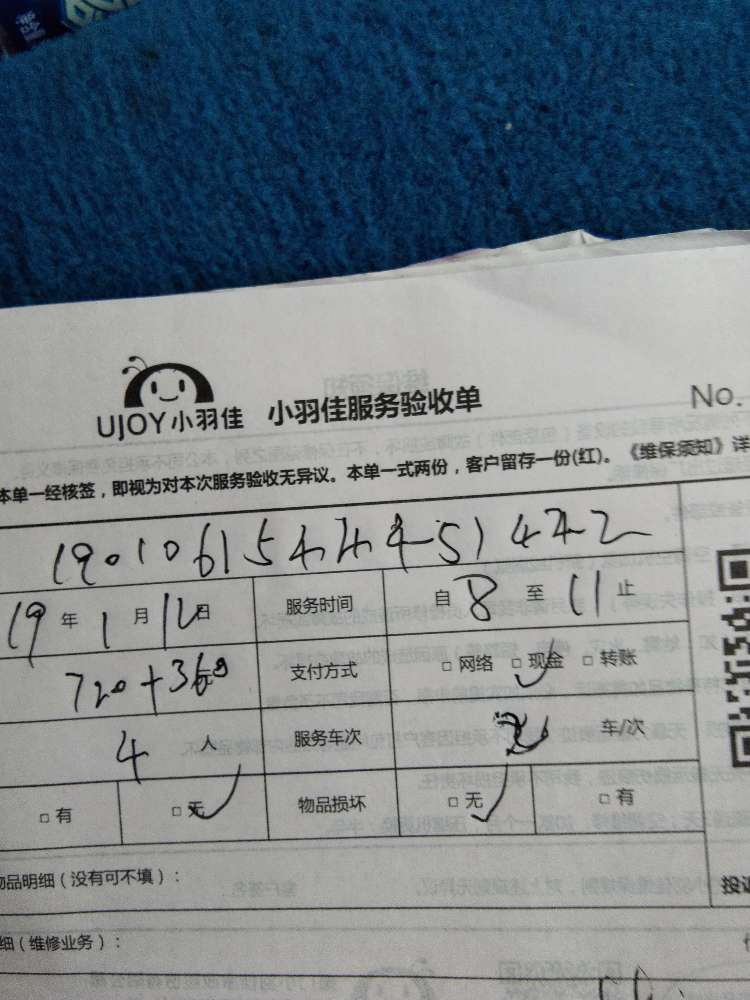 UJOY小羽佳 小羽佳服务验收单 No.
本单一经核签，即视为对本次服务验收无异议。本单一式两份，客户留存一份(红)。《维保须知》详
19年1月12日 服务时间 自8至11止
720+360 支付方式 □网络 □现金 □转账
4人 服务车次 车/次
□有 □无 物品损坏 □无 □有
物品明细（没有可不填）： 投诉
细（维修业务）：